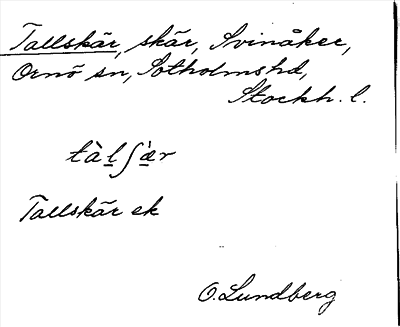 Tallskär, skär, Svinåker,
Ornö sn, Sotholms hd,
Stockh. l.
tàl̲ʃæ̲̀r
Tallskär ek
O. Lundberg